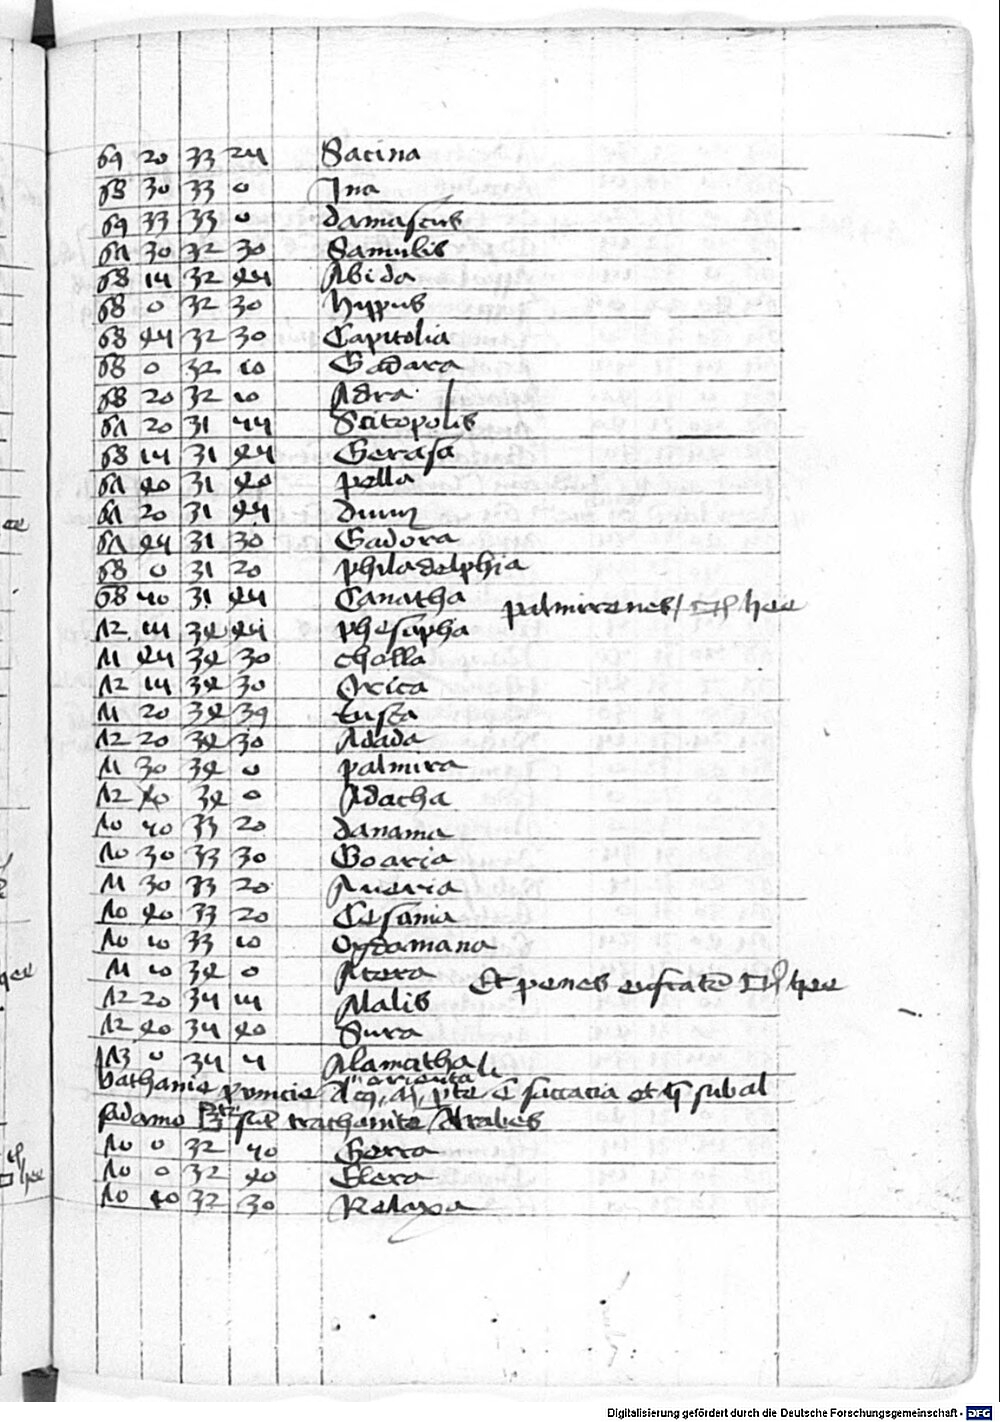 69 20 33 24 Sacina
68 30 33 0 Ina
69 33 33 0 damascus
67 30 32 30 Samulis
68 14 32 44 Abida
68 0 32 30 hyppus
68 44 32 30 Capitolia
68 0 32 10 Gadara
68 20 32 10 Adra
67 20 31 44 Scitopolis
68 14 31 44 Gerasa
67 40 31 40 pella
67 20 31 44 dium
67 44 31 30 Gadora
68 0 31 20 philadelphia
68 40 31 44 Canatha palmirenes
72 14 34 44 phesapha
71 44 34 30 cholla
72 14 34 30 Oriza
71 20 34 39 Eusta
72 20 34 30 Adada
71 30 34 0 palmira
72 40 34 0 Adacha
70 40 33 20 danama
70 30 33 30 Goaria
71 30 33 20 Aueria
70 40 33 20 Cesania
70 10 33 10 Ogdomana
71 10 34 0 Atera Et penes eufraten
72 20 34 14 Alalis
72 40 34 40 Sura
73 0 34 4 Alamatha
bathanie prouincie orienta saccaia et subal
sadamo trachonite Arabes
70 0 32 40 Gerra
70 0 32 40 Elera
70 40 32 30 Relaxa
Digitalisierung gefördert durch die Deutsche Forschungsgemeinschaft - DFG